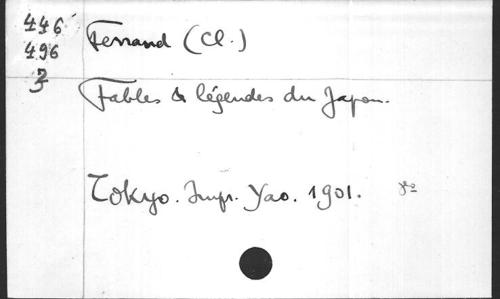 446
496
3
Ferrand (Cl.)
Fables & légendes du Japon.
Tokyo. Impr. Yao. 1901. 8º